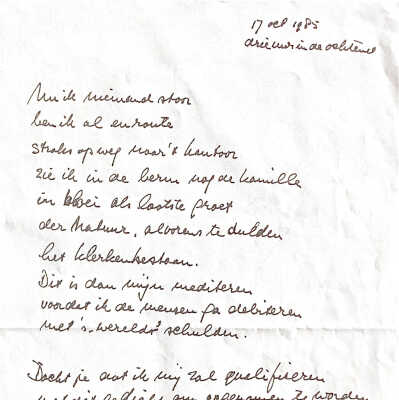 17 oct 1985
drie uur in de ochtend
Nu ik niemand stoor
ben ik al en route
straks op weg naar 't kantoor
zie ik in de berm nog de kamille
in bloei als laatste groet
der Natuur, alvorens te dulden
het klerkenbestaan.
Dit is dan mijn mediteren
voordat ik de mensen ga debiteren
met 's werelds schulden.
Dacht je dat ik mij zal qualificeren
om opgenomen te worden